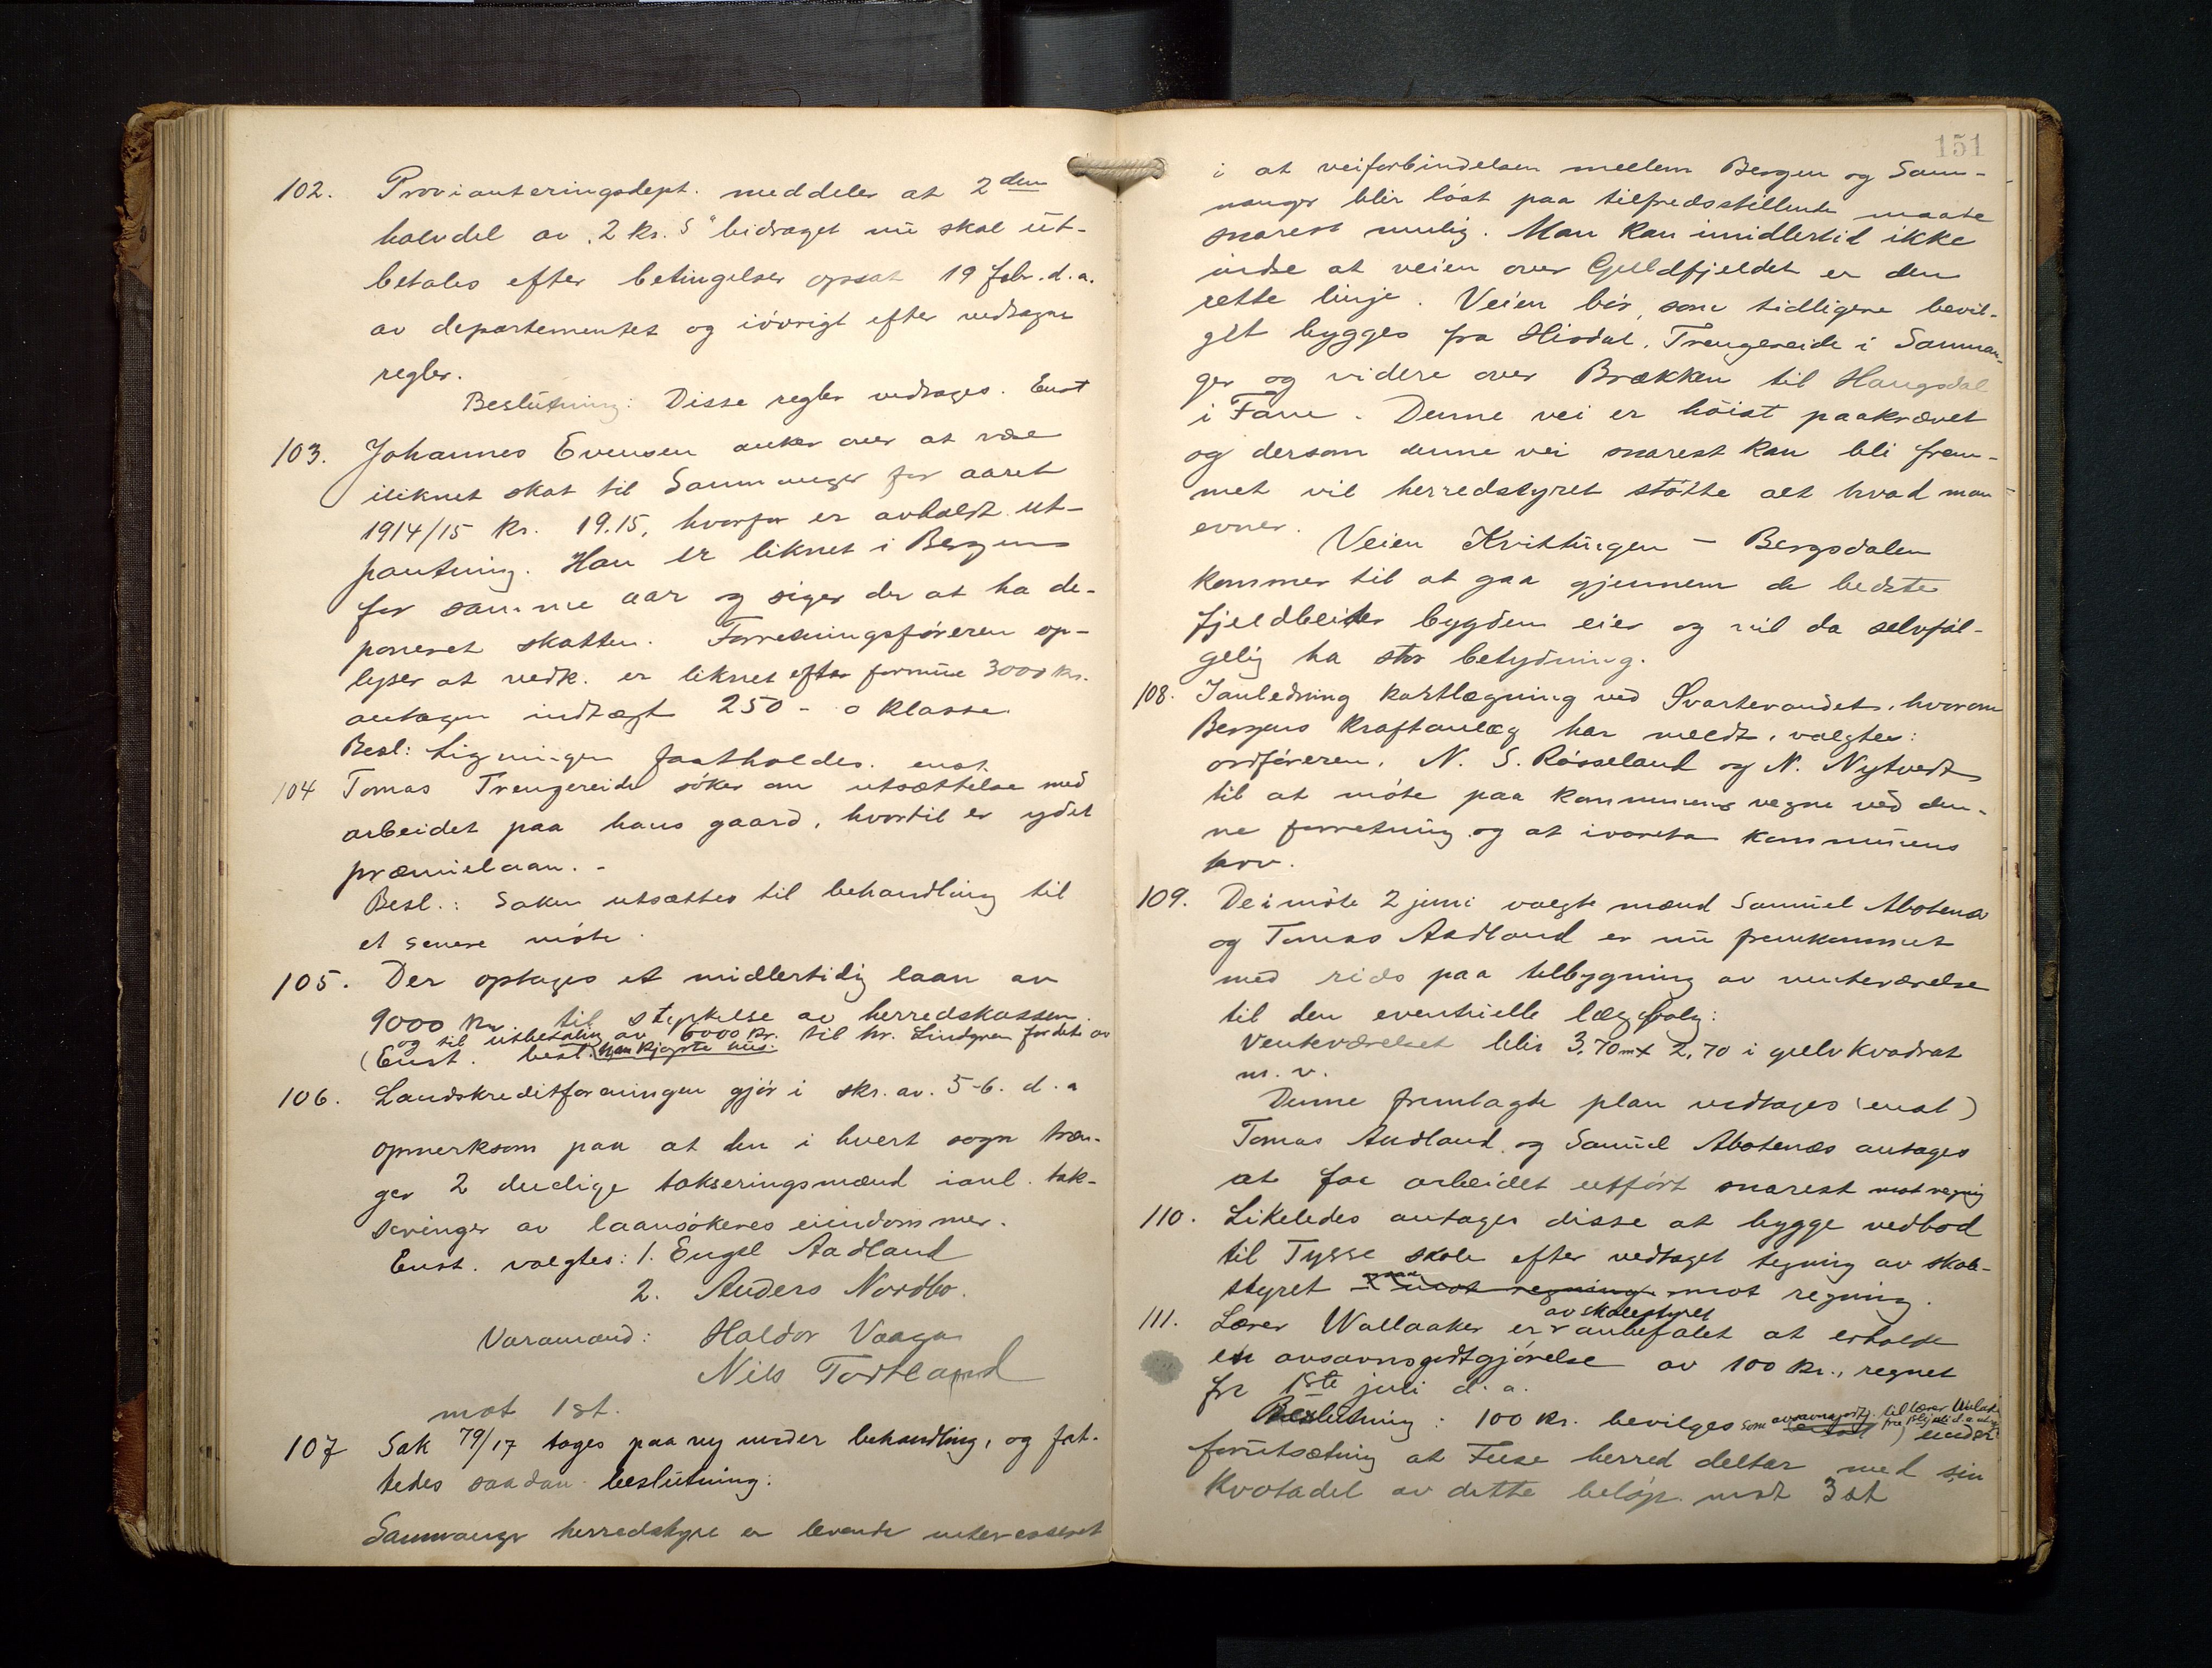 102. Provianteringsdept. meddeler at 2den
halvdel av "2 kr.s" bidraget nu skal ut-
betales efter betingelser opsat 19 febr. d.a.
av departementet og iövrigt efter vedtagne
regler.
Beslutning: Disse regler vedtages. Enst
103. Johannes Evensen anker over at være
iliknet skat til Samnanger for aaret
1914/15 kr. 19.15, hvorfor er avholdt ut-
pantning. Han er liknet i Bergen
for samme aar og siger der at ha de-
poneret skatten. Forretningsföreren op-
lyser at vedk. er liknet efter formue 3000 kr.
antagen indtægt 250 - 0 klasse.
Besl: Ligningen fastholdes. enst.
104 Tomas Trengereide söker om utsættelse med
arbeidet paa hans gaard, hvortil er ydet
præmielaan. -
Besl.: Saken utsættes til behandling til
et senere möte.
105. Der optages et midlertidig laan av
9000 kr. til styrkelse av herredskassen
og til utbetaling av 6000 kr. til hr. Lindgren for det av
(Enst. besl. han kjøpte hus.
106. Landskreditforeningen gjör i skr. av. 5-6. d.a
opmerksom paa at den i hvert sogn træn-
ger 2 duelige takseringsmænd ianl. tak-
seringer av laansökeres eiendommer.
Enst. valgtes: 1. Engel Aadland
2. Anders Nordbo.
Varamænd: Haldor Vaage
Nils Tveitland
mot 1 st.
107 Sak 79/17 tages paa ny under behandling, og fat-
tedes saadan beslutning:
Samnanger herredstyre er levende interesseret
151
i at veiforbindelsen mellem Bergen og Sam-
nanger blir löst paa tilfredsstillende maate
snarest mulig. Man kan imidlertid ikke
indse at veien over Gulldfjeldet er den
rette linje. Veien bör, som tidligere bevil-
get bygges fra Hisdal, Trengereide i Samnan-
ger og videre over Brækken til Haugsdal
i Fane. Denne vei er höist paakrævet
og dersom denne vei snarest kan bli frem-
met vil herredstyret stötte alt hvad man
evner.
Veien Kvittingen - Bergsdalen
kommer til at gaa gjennem de bedste
fjeldbeiter bygden eier og vil da selvföl-
gelig ha stor betydning.
108. Ianledning kartlægning ved Svartevandet, hvorom
Bergens kraftanlæg har meldt, valgtes:
ordföreren, N. S. Rösseland og N. Nytvedt
til at möte paa kommunens vegne ved den-
ne forretning og at ivareta kommunens
tarv.
109. De i möte 2 juni valgte mænd Samuel Abotenæs
og Tomas Aadland er nu fremkommet
med rids paa tilbygning av venteværelse
til den eventuelle lægebolig:
Venteværelset blir 3,70 m x 2,70 i gulv kvadrat
m. v.
Denne fremlagte plan vedtages (enst)
Tomas Aadland og Samuel Abotenæs antages
at faa arbeidet utfört snarest mot regning
110. Likeledes antages disse at bygge vedbod
til Tysse skole efter vedtaget tegning av skole-
styret mot regning mot regning.
111. Lærer Wallaaker er av skolestyret anbefalet at erholde
en avsavnsgodtgjörelse av 100 kr., regnet
fra 1ste juli d. a.
Beslutning: 100 kr. bevilges som avsavnsgodtg. til lærer
fra 1 juli d.a. under
forutsætning at Fuse herred deltar med sin
Kvotadel av dette belöp. mot 3 st